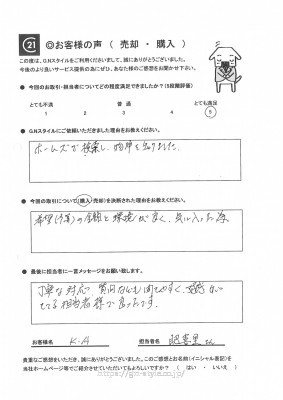 21 ◎お客様の声（ 売却 ・ 購入 ）
この度は、G.Nスタイルをご利用くださいまして、誠にありがとうございました。
今後のより良いサービス提供の為にぜひ、あなた様のご感想をお聞かせ下さい。
● 今回のお取引・担当者についてどの程度満足できましたか？（5段階評価）
とても不満 普通 とても満足
1 2 3 4 5
G.Nスタイルにご依頼いただきました理由をお教えください。
ホームズで検索し、物件を知りました。
● 今回の取引について（購入・売却）を決断された理由をお教えください。
希望(予算)の金額と環境が良く、気に入った為
● 最後に担当者に一言メッセージをお願い致します。
丁寧な対応、質問なども聞きやすく、好感が
もてる担当者様で良かったです。
お客様名 K・A 担当者名 さん
貴重なご感想をいただき、誠にありがとうございました。このご感想とお名前（イニシャル表記）を
当社ホームページ等でご紹介させていただいてもよろしいですか？ （ はい ・ いいえ ）